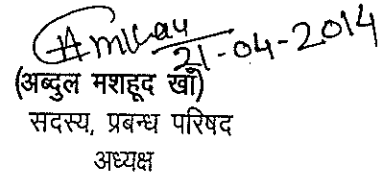 21-04-2014
(अब्दुल मशहूद खाँ)
सदस्य, प्रबन्ध परिषद
अध्यक्ष